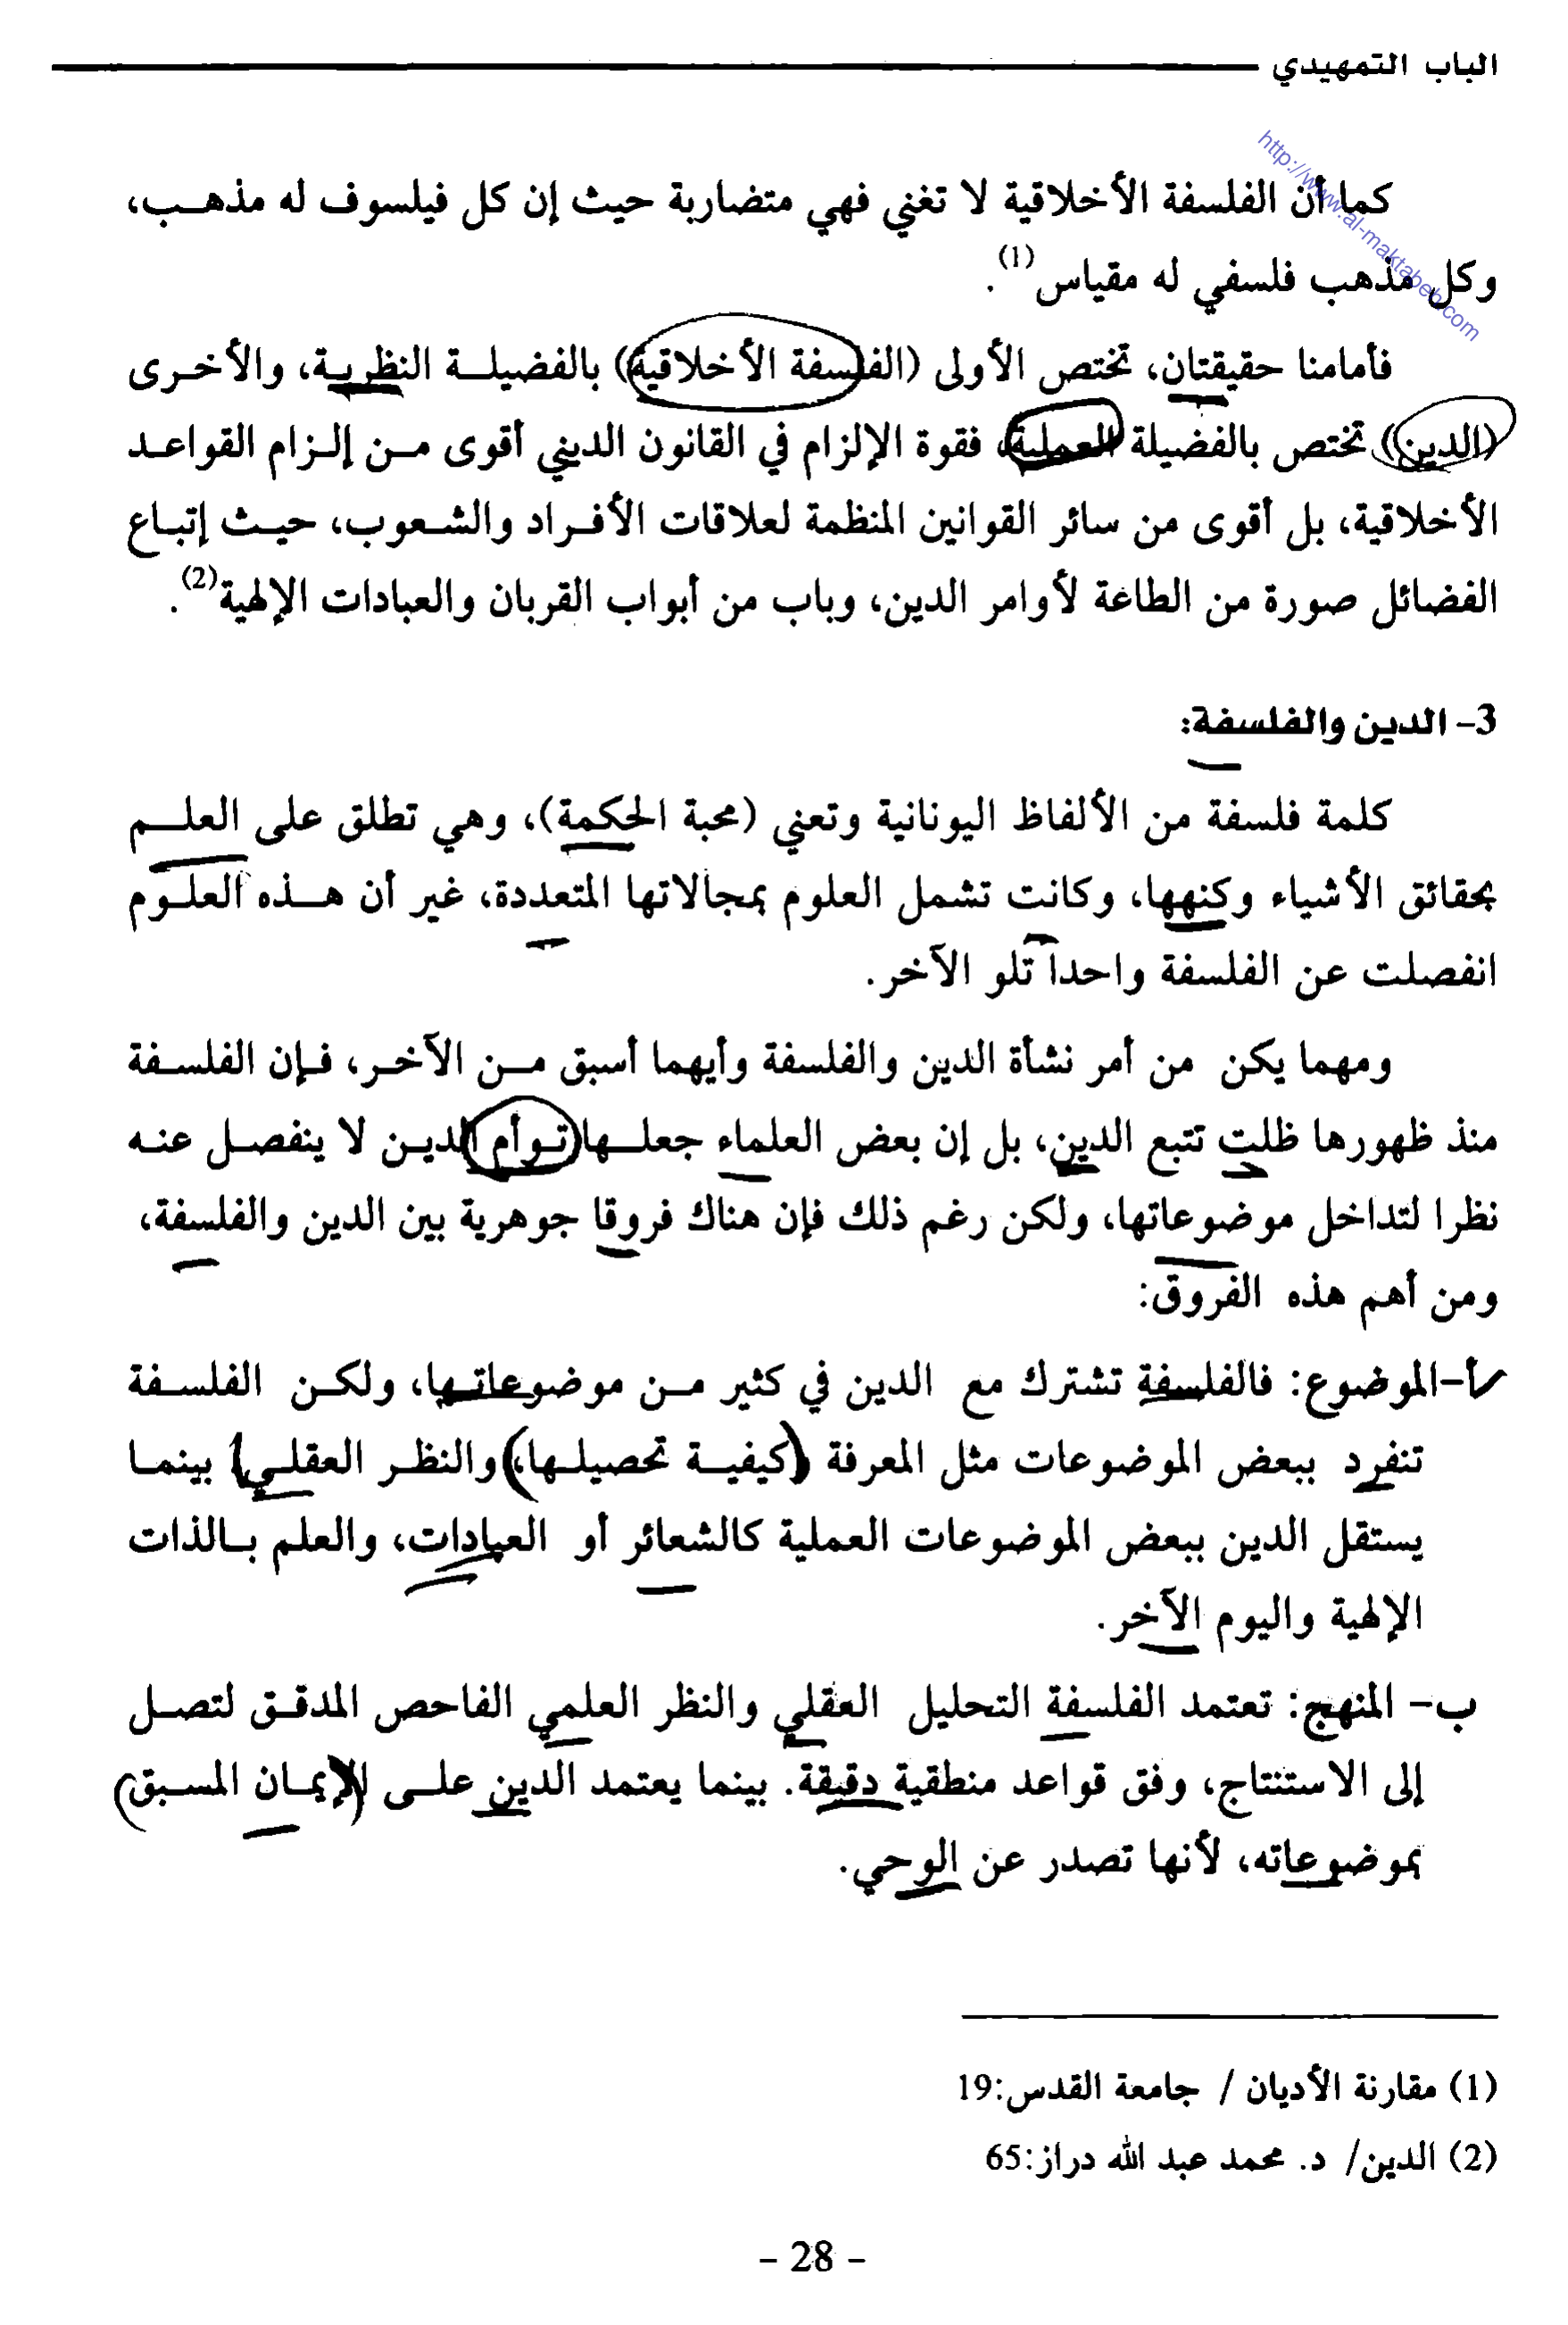 الباب التمهيدي
http://www.al-maktabeh.com
كما أن الفلسفة الأخلاقية لا تغني فهي متضاربة حيث إن كل فيلسوف له مذهب،
وكل مذهب فلسفي له مقياس(1).
فأمامنا حقيقتان، تختص الأولى (الفلسفة الأخلاقية) بالفضيلة النظرية، والأخرى
(الدين) تختص بالفضيلة العملية، فقوة الإلزام في القانون الديني أقوى من إلزام القواعد
الأخلاقية، بل أقوى من سائر القوانين المنظمة لعلاقات الأفراد والشعوب، حيث إتباع
الفضائل صورة من الطاعة لأوامر الدين، وباب من أبواب القربان والعبادات الإلهية(2).
3- الدين والفلسفة:
كلمة فلسفة من الألفاظ اليونانية وتعني (محبة الحكمة)، وهي تطلق على العلم
بحقائق الأشياء وكنهها، وكانت تشمل العلوم بمجالاتها المتعددة، غير أن هذه العلوم
انفصلت عن الفلسفة واحداً تلو الآخر.
ومهما يكن من أمر نشأة الدين والفلسفة وأيهما أسبق من الآخر، فإن الفلسفة
منذ ظهورها ظلت تتبع الدين، بل إن بعض العلماء جعلها توأم الدين لا ينفصل عنه
نظرا لتداخل موضوعاتها، ولكن رغم ذلك فإن هناك فروقا جوهرية بين الدين والفلسفة،
ومن أهم هذه الفروق:
أ-الموضوع: فالفلسفة تشترك مع الدين في كثير من موضوعاتها، ولكن الفلسفة
تنفرد ببعض الموضوعات مثل المعرفة (كيفية تحصيلها، والنظر العقلي) بينما
يستقل الدين ببعض الموضوعات العملية كالشعائر أو العبادات، والعلم بالذات
الإلهية واليوم الآخر.
ب- المنهج: تعتمد الفلسفة التحليل العقلي والنظر العلمي الفاحص المدقق لتصل
إلى الاستنتاج، وفق قواعد منطقية دقيقة. بينما يعتمد الدين على الإيمان المسبق
بموضوعاته، لأنها تصدر عن الوحي.
(1) مقارنة الأديان / جامعة القدس:19
(2) الدين/ د. محمد عبد الله دراز:65
- 28 -